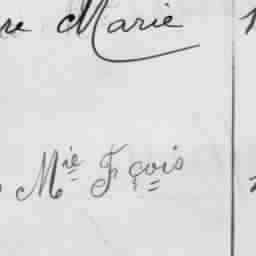 re Marie
Mie Fçois